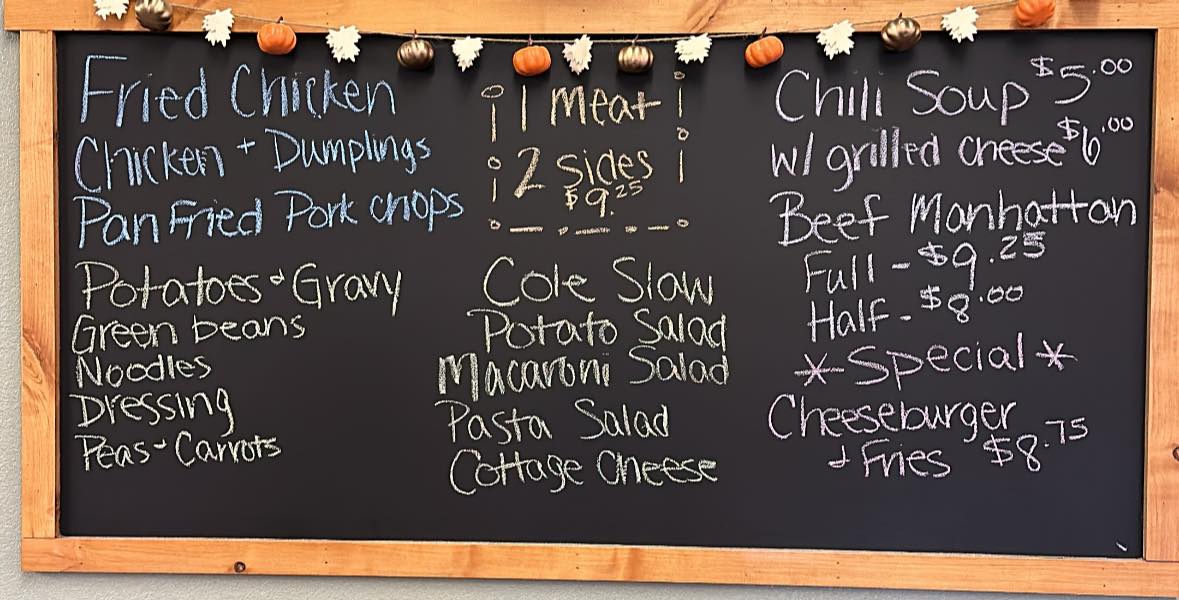 Fried Chicken
Chicken + Dumplings
Pan Fried Pork chops
Potatoes + Gravy
Green beans
Noodles
Dressing
Peas + Carrots
1 Meat
2 Sides
$9.25
Cole Slaw
Potato Salad
Macaroni Salad
Pasta Salad
Cottage Cheese
Chili Soup $5.00
w/ grilled cheese $6.00
Beef Manhattan
Full - $9.25
Half - $8.00
* Special *
Cheeseburger
+ Fries $8.75